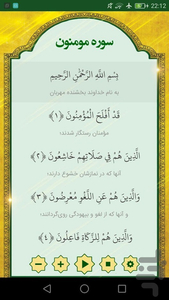 22:12
سوره مومنون
بِسْمِ اللَّهِ الرَّحْمَٰنِ الرَّحِيمِ
به نام خداوند بخشنده مهربان
قَدْ أَفْلَحَ الْمُؤْمِنُونَ ﴿۱﴾
مؤمنان رستگار شدند؛
الَّذِينَ هُمْ فِي صَلَاتِهِمْ خَاشِعُونَ ﴿۲﴾
آنها که در نمازشان خشوع دارند؛
وَالَّذِينَ هُمْ عَنِ اللَّغْوِ مُعْرِضُونَ ﴿۳﴾
و آنها که از لغو و بیهودگی روی‌گردانند؛
وَالَّذِينَ هُمْ لِلزَّكَاةِ فَاعِلُونَ ﴿۴﴾